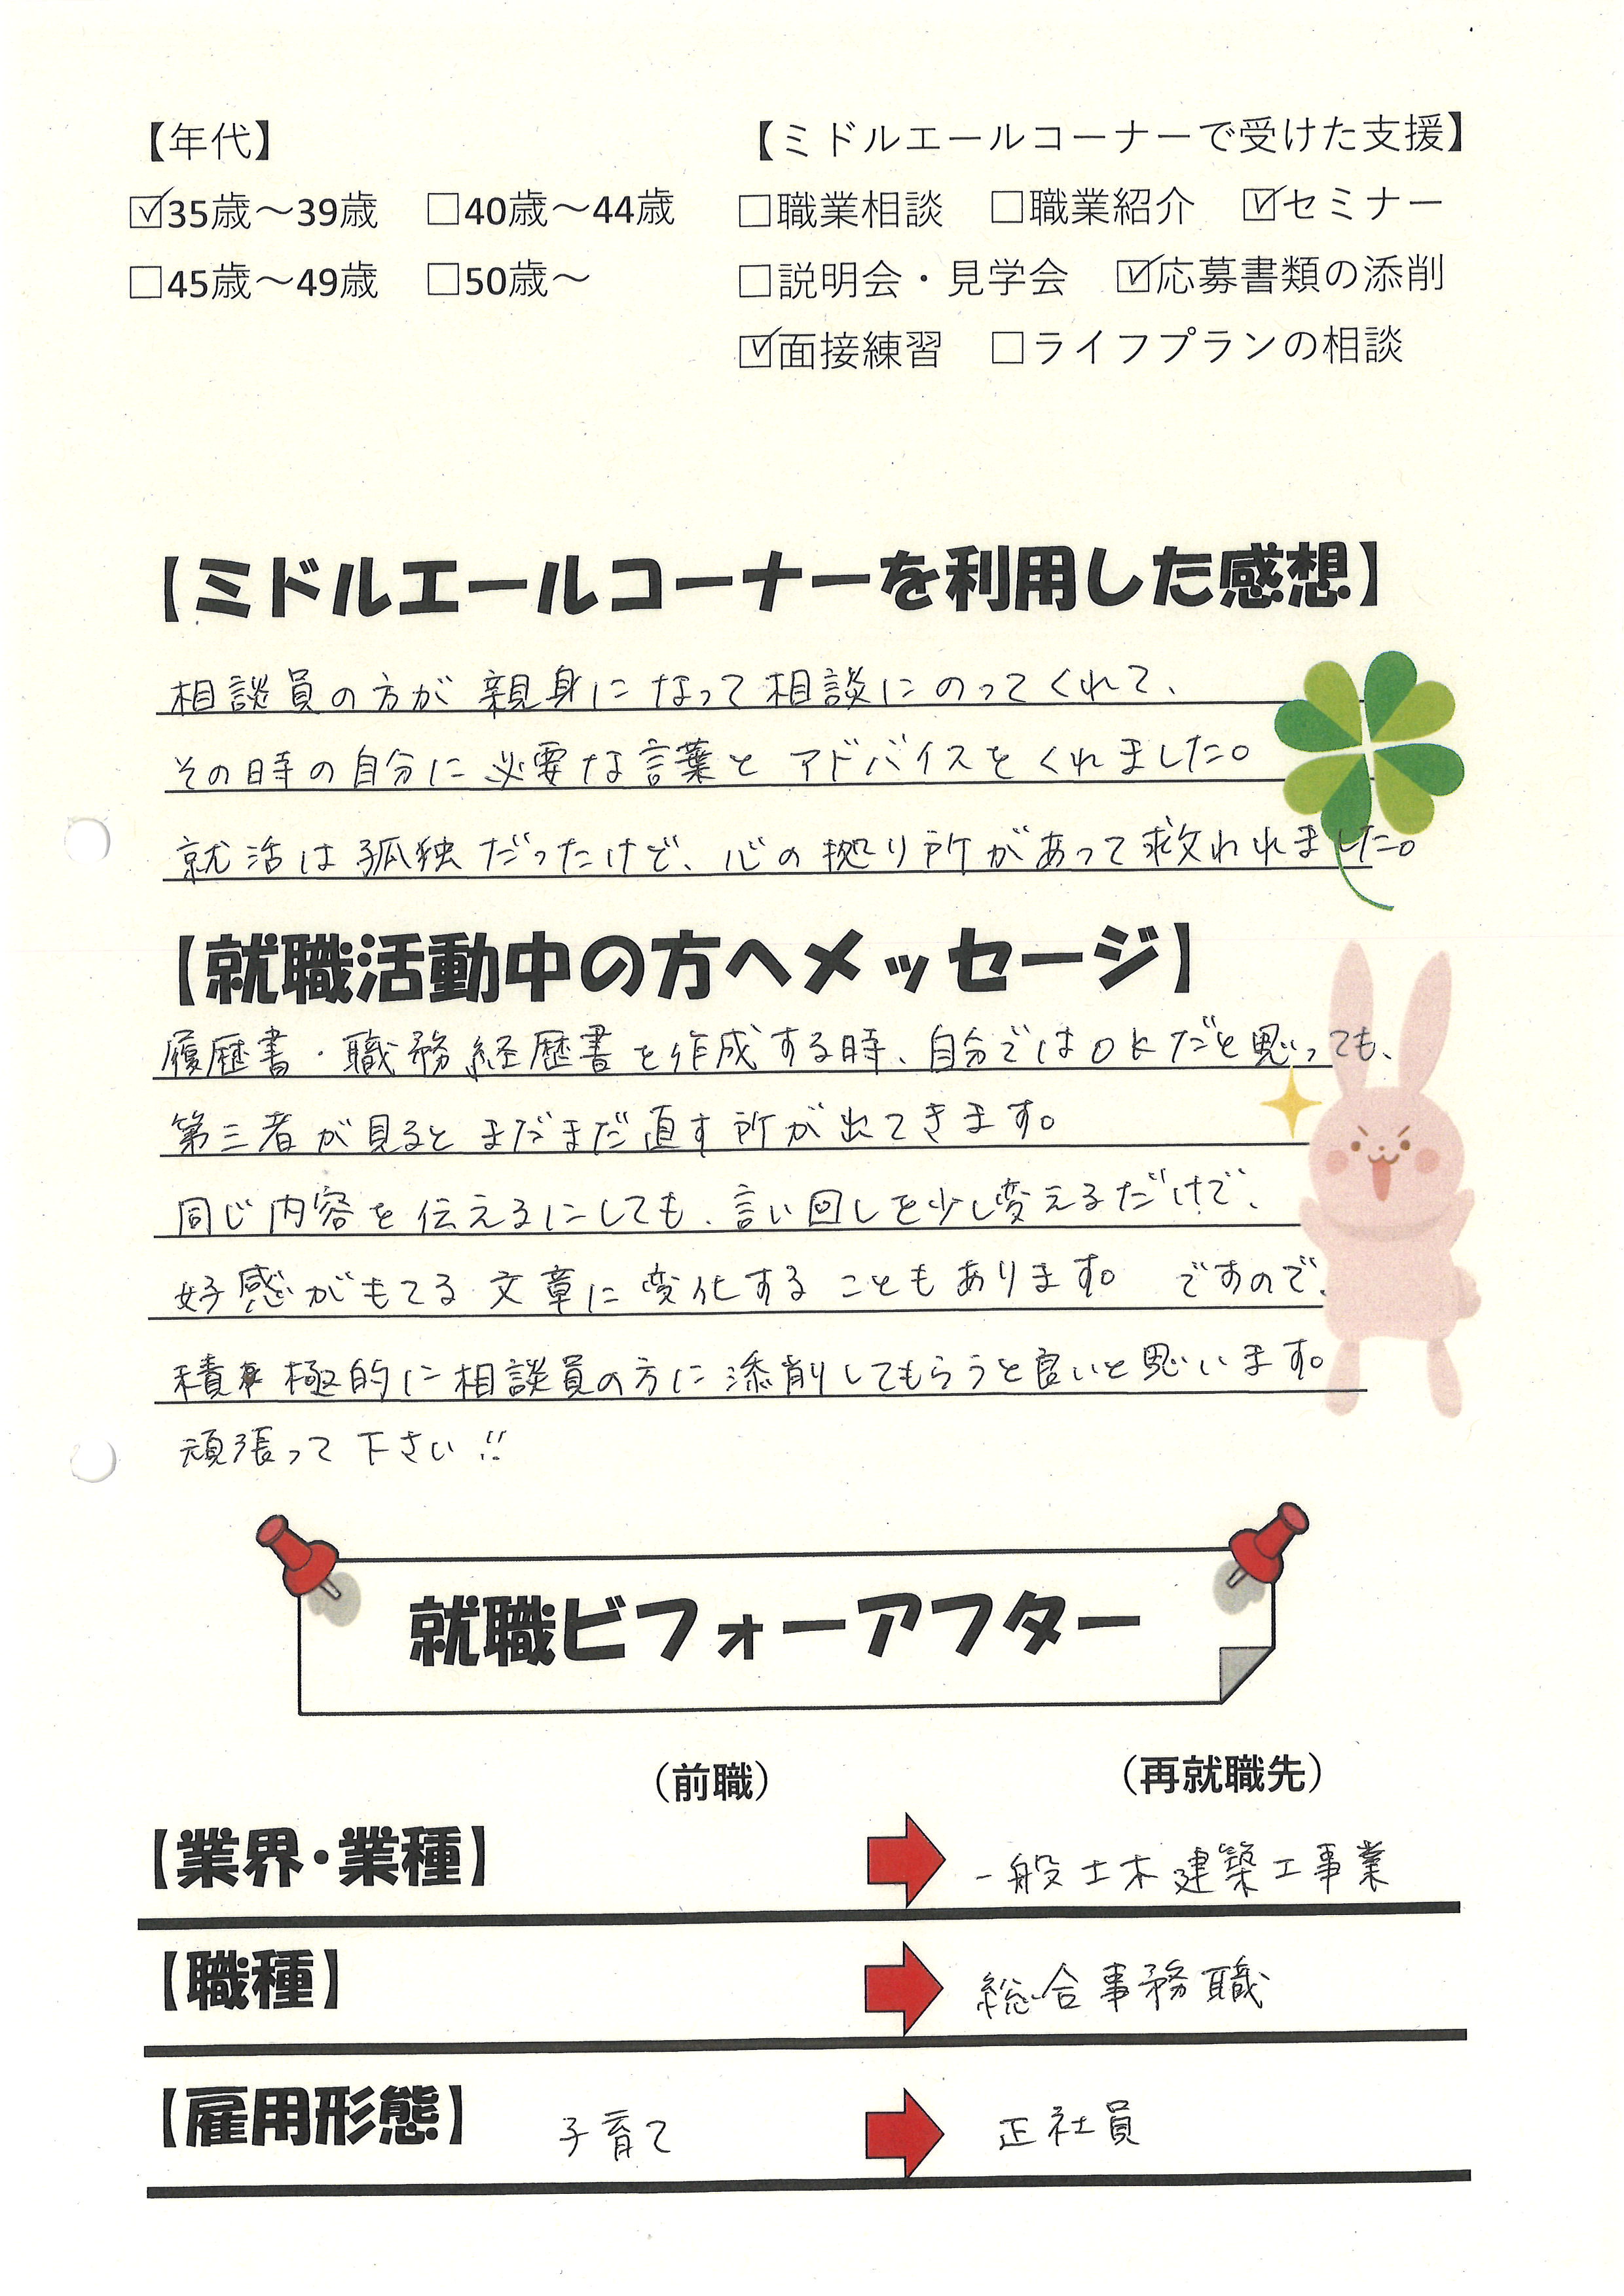 【年代】
☑35歳～39歳 □40歳～44歳
□45歳～49歳 □50歳～
【ミドルエールコーナーで受けた支援】
□職業相談 □職業紹介 ☑セミナー
□説明会・見学会 ☑応募書類の添削
☑面接練習 □ライフプランの相談
【ミドルエールコーナーを利用した感想】
相談員の方が親身になって相談にのってくれて、
その時の自分に必要な言葉とアドバイスをくれました。
就活は孤独だったけど、心の拠り所があって救われました。
【就職活動中の方へメッセージ】
履歴書・職務経歴書を作成する時、自分ではOKだと思っても、
第三者が見るとまだまだ直す所が出てきます。
同じ内容を伝えるにしても、言い回しを少し変えるだけで、
好感がもてる文章に変化することもあります。 ですので、
積極的に相談員の方に添削してもらうと良いと思います。
頑張って下さい!!
就職ビフォーアフター
（前職） （再就職先）
【業界・業種】 一般土木建築工事業
【職種】 総合事務職
【雇用形態】 子育て 正社員